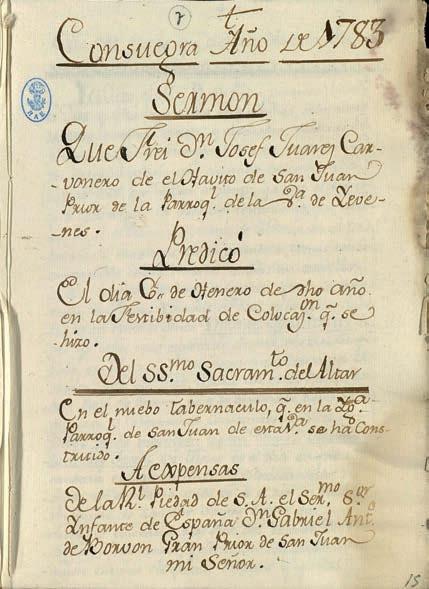 7
t
Consuegra Año de 1783
Sermon
Que Frei Dn. Josef Juarez Car-
vonero de el Havito de San Juan
Prior de la Parroql. de la Va. de Yeve-
nes.
Predicó
El dia 6o. de Henero de dho año
en la Festibidad de Colocazon. q. se
hizo.
Del SSmo. Sacramto. del Altar
En el nuebo tabernaculo, q. en la Yga.
Parroql. de San Juan de esta Va. se ha Cons-
truido.
A expensas
de la Rl. Piedad de S. A. el Sermo. Sor.
Ynfante de España Dn. Gabriel Anto.
de Borvon Gran Prior de San Juan
mi Señor.
15